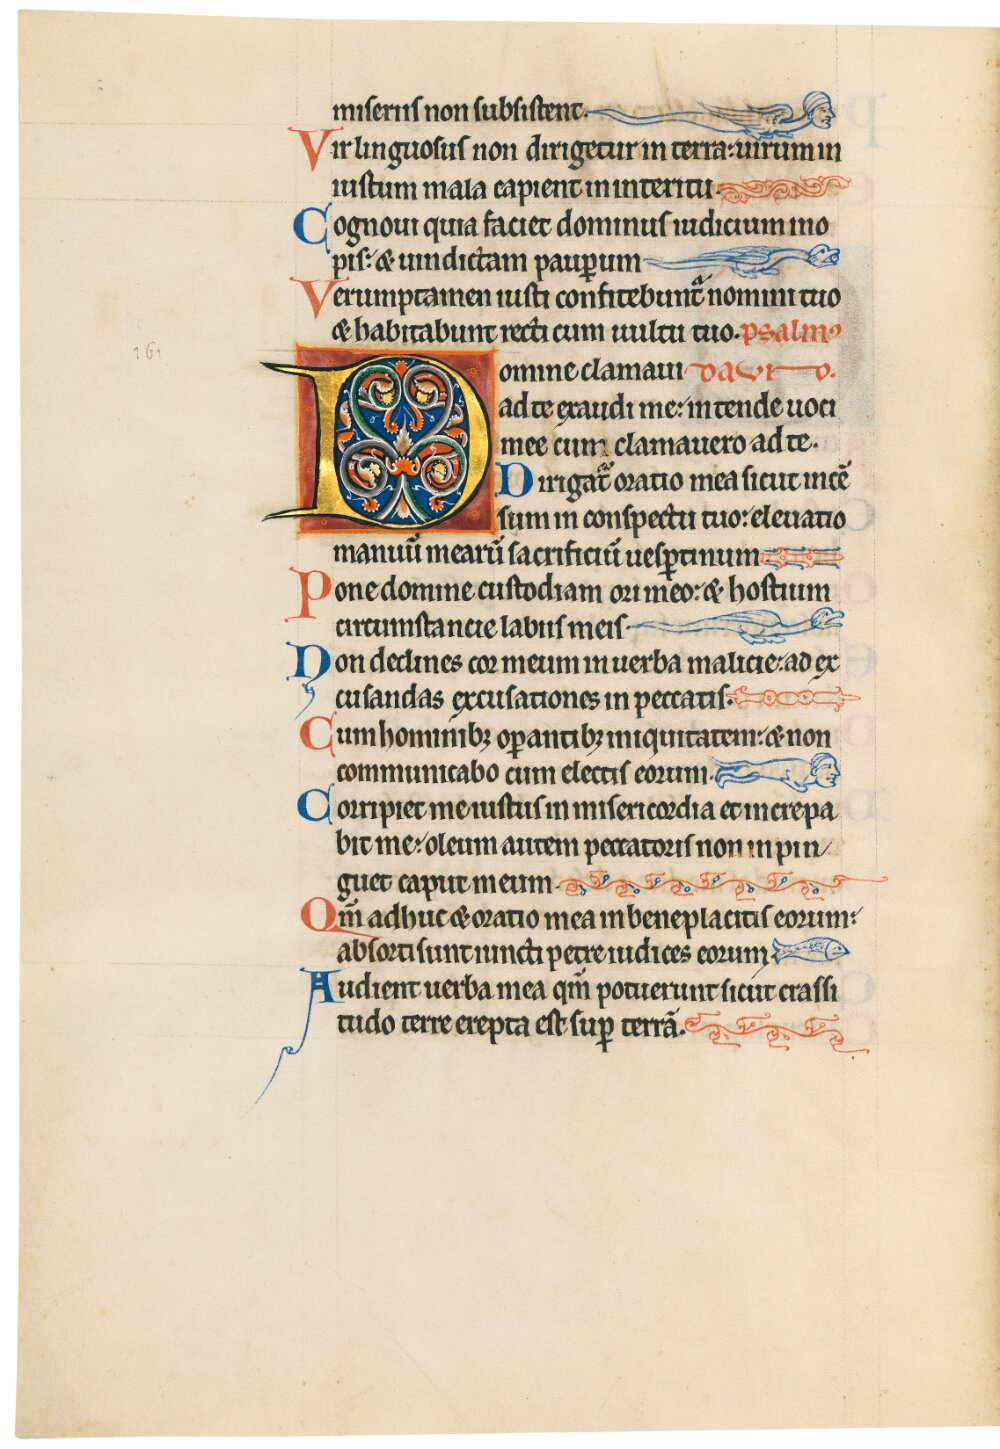 miseriis non subsistent.
Vir linguosus non dirigetur in terra: uirum in
iustum mala capient in interitu.
Cognoui quia faciet dominus iudicium ino
pis: & uindictam pauꝑum
Verumptamen iusti confitebunt̃ nomini tuo
& habitabunt recti cum uultu tuo. psalmꝰ
omine clamaui david.
D
ad te exaudi me: intende uoci
mee cum clamauero ad te.
Dirigat̃ oratio mea sicut incē
sum in conspectu tuo: eleuatio
manuū mearū sacrificiū uesꝑtinum
Pone domine custodiam ori meo: & hostium
circumstancie labiis meis.
Non declines cor meum in uerba malicie: ad ex
cusandas excusationes in peccatis.
Cum hominibꝫ oꝑantibꝫ iniquitatem: & non
communicabo cum electis eorum.
Corripiet me iustus in misericordia et increpa
bit me: oleum autem peccatoris non inpin/
guet caput meum.
Qm̄ adhuc & oratio mea in beneplacitis eorum:
absorti sunt iuncti petre iudices eorum
Audient uerba mea qm̄ potuerunt sicut crassi
tudo terre erepta est suꝑ terrā.
161